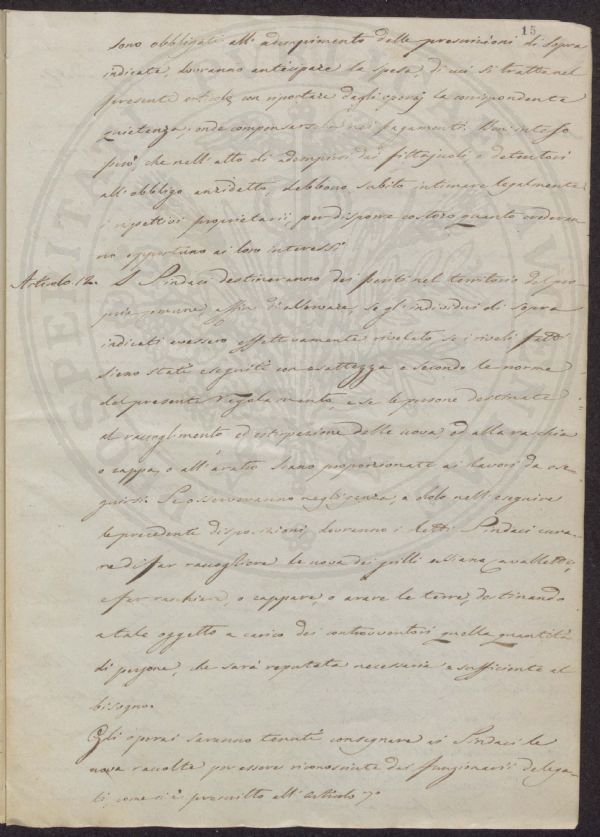 15
sono obbligati all'adempimento delle prescrizioni di sopra
indicate, dovranno anticipare la spesa, di cui si tratta nel
presente articolo, con riportare dagli operaj la corrispondente
quietanza, onde compensarsela nei pagamenti. Ben inteso
però, che nell'atto di adempirsi dai fittajuoli, o detentori
all'obbligo anzidetto, debbono subito intimare legalmente
i rispettivi proprietarii, per disporre costoro quanto crederan-
no opportuno ai loro interessi.
Articolo 12. I Sindaci destineranno dei periti nel territorio del pro-
prio comune, affin di osservare, se gl'individui di sopra
indicati avessero effettivamente rivelato, se i riveli fatti
sieno stati eseguiti con esattezza e secondo le norme
del presente Regolamento, e se le persone destinate
al raccoglimento ed estirpazione delle uova, od alla raschia
o zappa, o all'aratro siano proporzionate ai lavori da ese-
guirsi. Se osserveranno negligenza, o dolo nell'eseguire
le precedenti disposizioni, dovranno i detti Sindaci cura-
re di far raccogliere le uova dei grilli o siano cavallette,
e far raschiare, o zappare, o arare le terre, destinando
a tale oggetto a carico dei controventori quella quantità
di persone, che sarà reputata necessaria e sufficiente al
bisogno.
Gli operai saranno tenuti consegnare ai Sindaci le
uova raccolte per essere riconosciute dai funzionarii delega-
ti, come si è prescritto all'articolo 7°